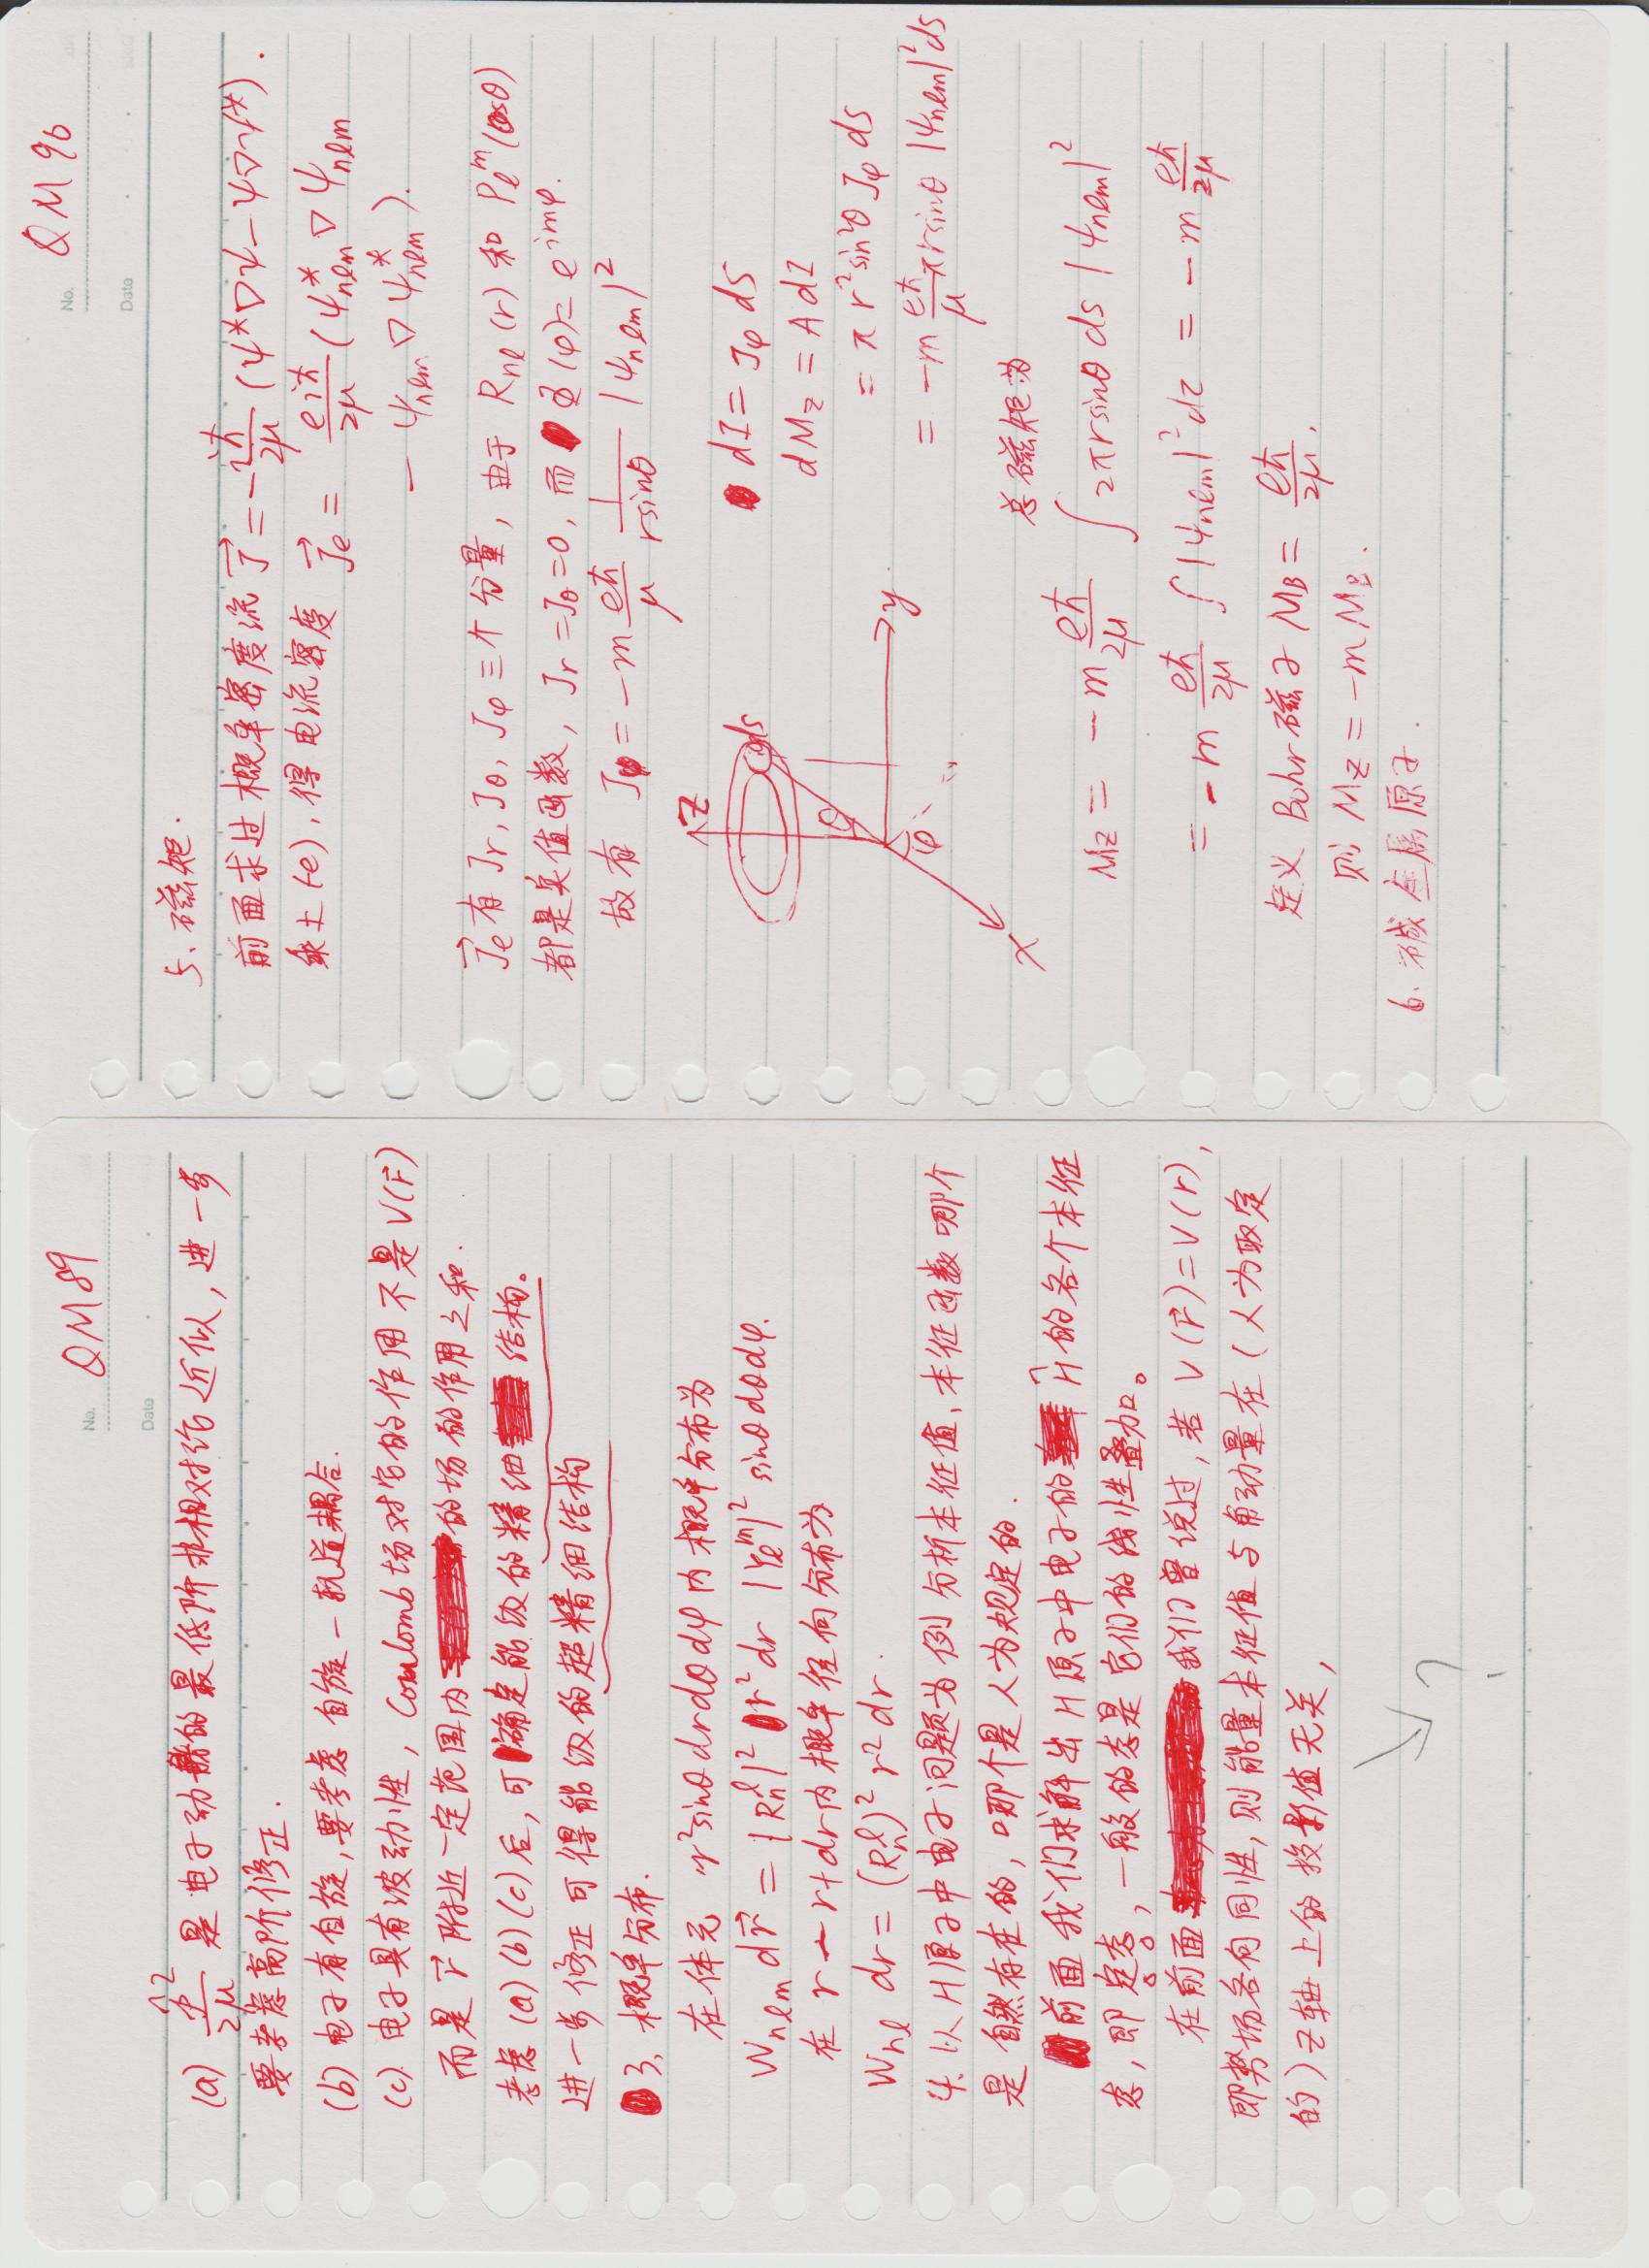 No. QM89
Date
(a) p̂²/2μ 是电子动能的最低阶非相对论近似, 进一步
要考虑高阶修正.
(b) 电子有自旋, 要考虑自旋-轨道耦合.
(c). 电子具有波动性, Coulomb场对它的作用不是V(r⃗)
而是r⃗附近一定范围内的场的作用之和.
考虑(a)(b)(c)后, 可确定能级的精细结构。
进一步修正可得能级的超精细结构
3、概率分布.
在体元 r²sinθdrdθdφ内概率分布为
Wnlm dr⃗ = |Rnˡ|² r²dr |Yₗᵐ|² sinθdθdφ.
在 r~r+dr内概率径向分布为
Wnl dr = (Rnˡ)² r² dr.
4. 以H原子中电子问题为例分析本征值、本征函数哪个
是自然存在的, 哪个是人为规定的.
前面我们求解出H原子中电子的Ĥ的各个本征
态, 即定态, 一般的态是它们的线性叠加。
在前面我们曾说过, 若 V(r⃗)=V(r),
即势场各向同性, 则能量本征值与角动量在(人为取定
的)z轴上的投影值无关,
?
No. QM90
Date
5、磁矩.
前面求过概率密度流 J⃗ = -iħ/2μ (ψ*∇ψ - ψ∇ψ*).
乘上(-e), 得电流密度 J⃗e = eiħ/2μ (ψ*nlm ∇ψnlm
- ψnlm ∇ψ*nlm).
J⃗e有Jr, Jθ, Jφ三个分量, 由于 Rnl(r) 和 Pₗᵐ(cosθ)
都是实值函数, Jr=Jθ=0, 而 Φ(φ)=e^{imφ}.
故有 Jφ = -m eħ/μ 1/(rsinθ) |ψnlm|²
z
ds
θ
y
φ
x
dI = Jφ ds
dMz = A dI
= π r²sin²θ Jφ ds
= -m eħ/μ πrsinθ |ψnlm|² ds
总磁矩为
Mz = -m eħ/2μ ∫2πrsinθ ds |ψnlm|²
= -m eħ/2μ ∫|ψnlm|²dτ = -m eħ/2μ
定义 Bohr磁子 MB = eħ/2μ,
则 Mz = -m MB.
6. 碱金属原子.